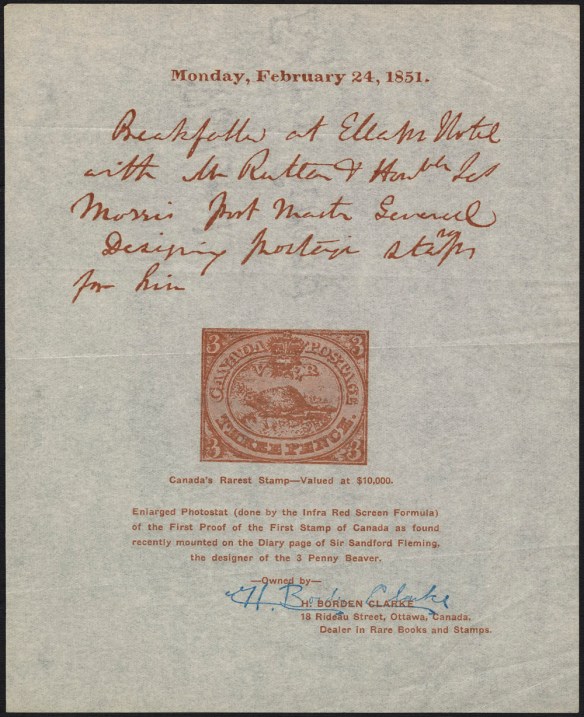 Monday, February 24, 1851.
Breakfast at Ellahs Hotel
with Mr Ruttan & Honble Jas
Morris post Master General
Designing postage stamps
for him
3 CANADA POSTAGE 3
V R
3 THREE PENCE. 3
Canada's Rarest Stamp—Valued at $10,000.
Enlarged Photostat (done by the Infra Red Screen Formula)
of the First Proof of the First Stamp of Canada as found
recently mounted on the Diary page of Sir Sandford Fleming,
the designer of the 3 Penny Beaver.
—Owned by—
H. Borden Clarke
H. BORDEN CLARKE
18 Rideau Street, Ottawa, Canada.
Dealer in Rare Books and Stamps.